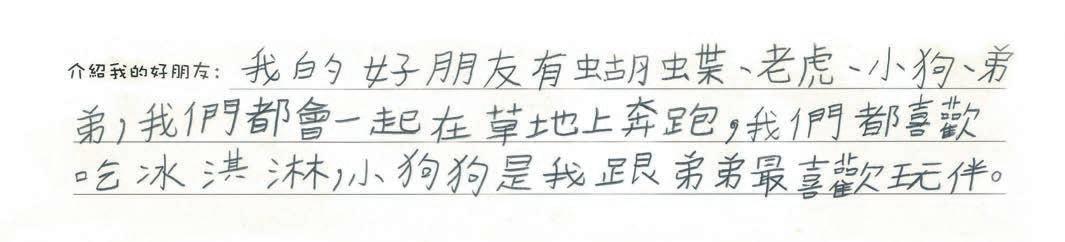 介紹我的好朋友：我的好朋友有蝴蝶、老虎、小狗、弟
弟，我們都會一起在草地上奔跑，我們都喜歡
吃冰淇淋，小狗狗是我跟弟弟最喜歡玩伴。